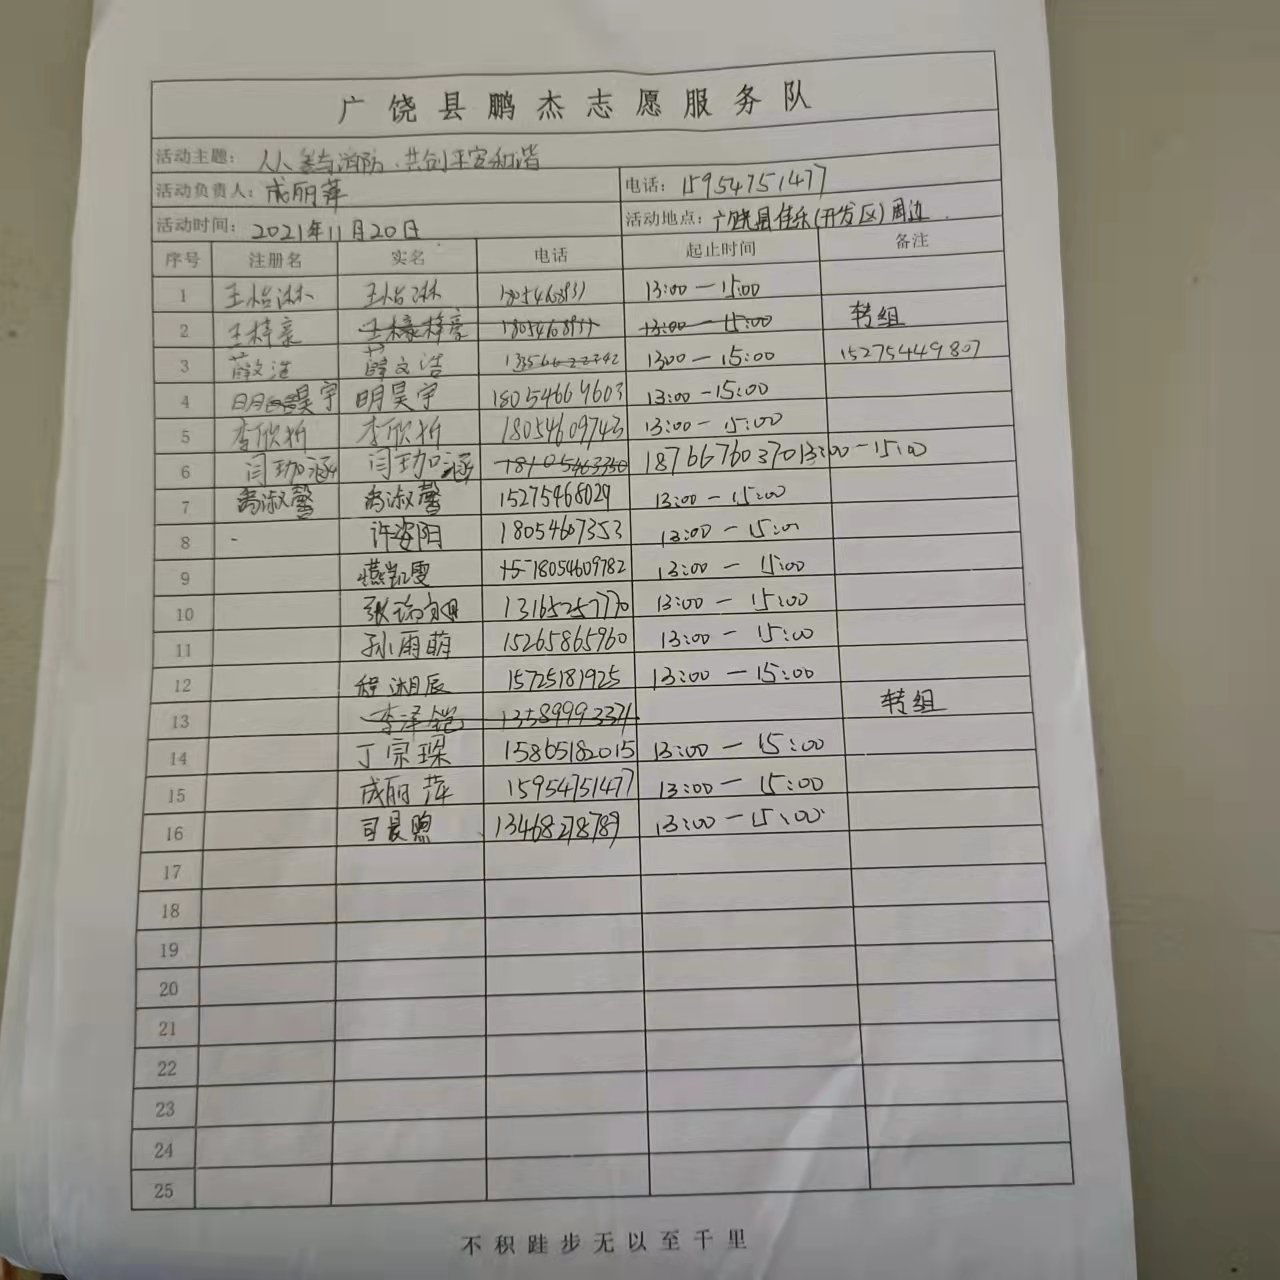 广饶县鹏杰志愿服务队
活动主题: 人人参与消防、共创平安和谐
活动负责人: 成丽萍 电话: 15954751477
活动时间: 2021年11月20日 活动地点: 广饶县佳乐(开发区)周边
序号 注册名 实名 电话 起止时间 备注
1 王怡淋 王怡淋 1805468931 13:00－15:00
2 王梓豪 王梓豪 1805468931 13:00－15:00 转组
3 薛文浩 薛文浩 13:00－15:00 15275449807
4 明昊宇 明昊宇 18054669603 13:00－15:00
5 李欣析 李欣析 18054609743 13:00－15:00
6 闫珈涵 闫珈涵 18105463350 18766760370 13:00－15:00
7 禹淑馨 禹淑馨 15275468029 13:00－15:00
8 许姿阳 18054607353 13:00－15:00
9 燕凯雯 18054609782 13:00－15:00
10 13165257770 13:00－15:00
11 孙雨萌 15265865960 13:00－15:00
12 程湘辰 15725181925 13:00－15:00
13 李泽铠 13589993371 转组
14 丁宗琛 15865182015 13:00－15:00
15 成丽萍 15954751477 13:00－15:00
16 司晨煦 13468278789 13:00－15:00
17
18
19
20
21
22
23
24
25
不积跬步无以至千里